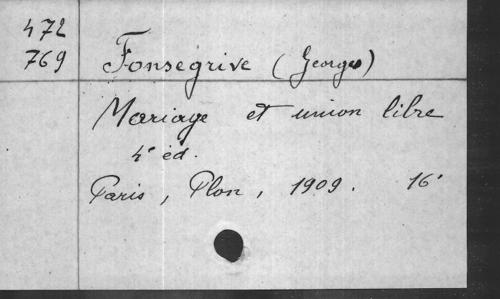 472
769 Fonsegrive (Georges)
Mariage et union libre
4e éd.
Paris, Plon, 1909. 16°